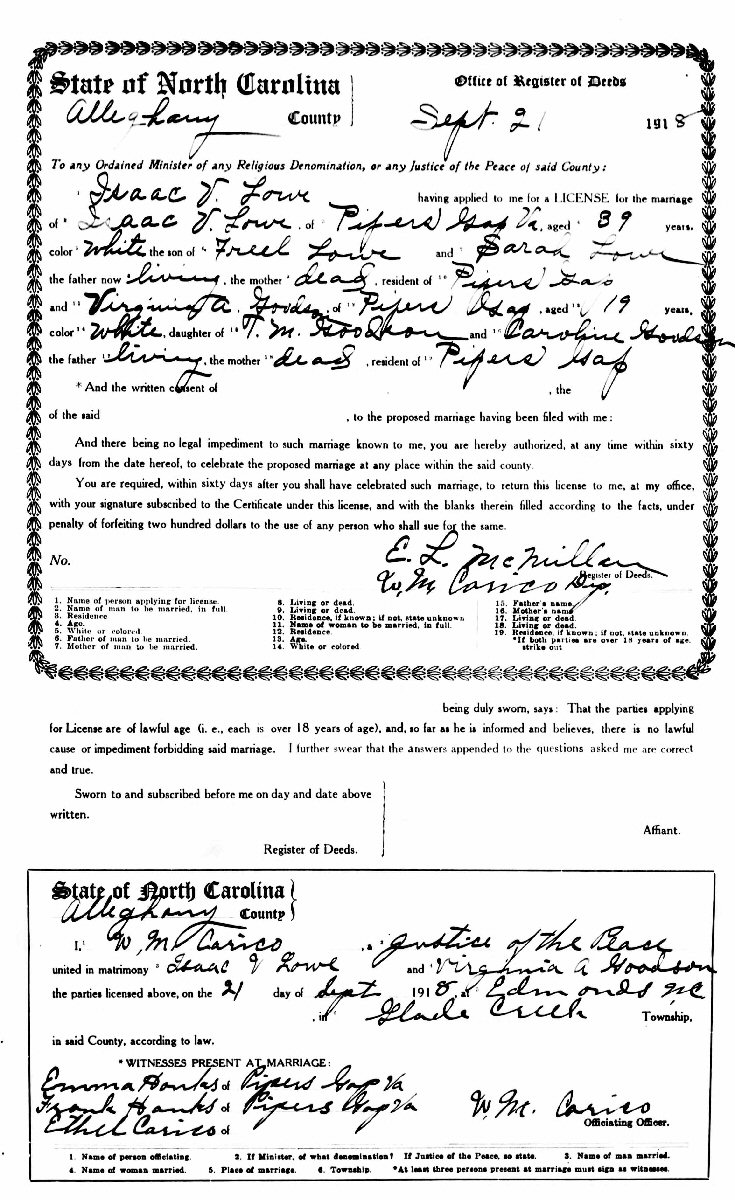 State of North Carolina
Office of Register of Deeds
Alleghany County
Sept. 21 1918
To any Ordained Minister of any Religious Denomination, or any Justice of the Peace of said County:
Isaac V. Lowe having applied to me for a LICENSE for the marriage
of Isaac V. Lowe, of Pipers Gap Va, aged 39 years,
color White the son of Freel Lowe and Sarah Lowe
the father now living, the mother dead, resident of Pipers Gap
and Virginia A. Goodson, of Pipers Gap, aged 19 years,
color White, daughter of T. M. Goodson and Caroline Goodson
the father living, the mother dead, resident of Pipers Gap
* And the written consent of , the
of the said , to the proposed marriage having been filed with me:
And there being no legal impediment to such marriage known to me, you are hereby authorized, at any time within sixty
days from the date hereof, to celebrate the proposed marriage at any place within the said county.
You are required, within sixty days after you shall have celebrated such marriage, to return this license to me, at my office,
with your signature subscribed to the Certificate under this license, and with the blanks therein filled according to the facts, under
penalty of forfeiting two hundred dollars to the use of any person who shall sue for the same.
No.
E. L. McMillan
Register of Deeds.
W. M. Carico Dy.
1. Name of person applying for license.
2. Name of man to be married, in full.
3. Residence
4. Age.
5. White or colored
6. Father of man to be married.
7. Mother of man to be married.
8. Living or dead.
9. Living or dead.
10. Residence, if known; if not, state unknown
11. Name of woman to be married, in full.
12. Residence.
13. Age.
14. White or colored
15. Father's name
16. Mother's name
17. Living or dead.
18. Living or dead.
19. Residence, if known; if not, state unknown.
*If both parties are over 18 years of age,
strike out
being duly sworn, says: That the parties applying
for License are of lawful age (i. e., each is over 18 years of age), and, so far as he is informed and believes, there is no lawful
cause or impediment forbidding said marriage. I further swear that the answers appended to the questions asked me are correct
and true.
Sworn to and subscribed before me on day and date above
written.
Affiant.
Register of Deeds.
State of North Carolina
Alleghany County
I, W. M. Carico, a Justice of the Peace
united in matrimony Isaac V Lowe and Virginia A Goodson
the parties licensed above, on the 21 day of Sept 1918, at Edmonds NC
, in Glade Creek Township,
in said County, according to law.
*WITNESSES PRESENT AT MARRIAGE:
Emma Hanks of Pipers Gap Va
Frank Hanks of Pipers Gap Va
Ethel Carico of
W. M. Carico
Officiating Officer.
1. Name of person officiating. 2. If Minister, of what denomination? If Justice of the Peace, so state. 3. Name of man married.
4. Name of woman married. 5. Place of marriage. 6. Township. *At least three persons present at marriage must sign as witnesses.